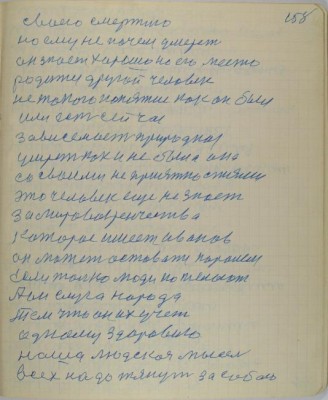 158
своего смертию
но ему не почем умереть
он знает хорошо на его место
родится другой человек
не такого понятие как он был
или есть сейчас
зависемает природная
умрет как и не была она
со своими не приятностями
это человек еще не знает
за мировозренчества
которое имеет иванов
он может оставатся
если только люди пожелают
Я им слуга народа
Тем что он их учет
одному здоровию
наша людская мысел
всех надо тянут за собою